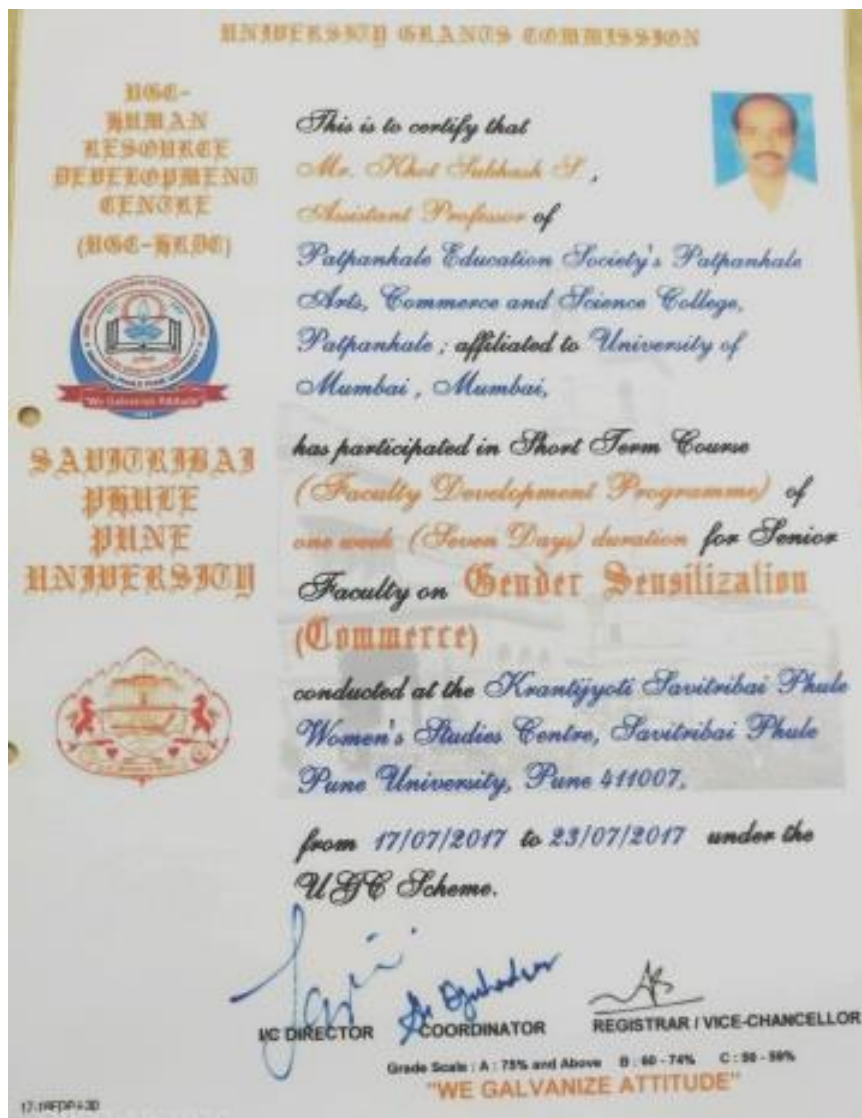 UNIVERSITY GRANTS COMMISSION
UGC-
HUMAN
RESOURCE
DEVELOPMENT
CENTRE
(UGC-HRDC)
"We Galvanize Attitude"
SAVITRIBAI
PHULE
PUNE
UNIVERSITY
This is to certify that
Mr. Khot Subhash S.,
Assistant Professor of
Patpanhale Education Society's Patpanhale
Arts, Commerce and Science College,
Patpanhale ; affiliated to University of
Mumbai , Mumbai,
has participated in Short Term Course
(Faculty Development Programme) of
one week (Seven Days) duration for Senior
Faculty on Gender Sensitization
(Commerce)
conducted at the Krantijyoti Savitribai Phule
Women's Studies Centre, Savitribai Phule
Pune University, Pune 411007,
from 17/07/2017 to 23/07/2017 under the
UGC Scheme.
I/C DIRECTOR COORDINATOR REGISTRAR / VICE-CHANCELLOR
Grade Scale : A : 75% and Above B : 60 - 74% C : 50 - 59%
"WE GALVANIZE ATTITUDE"